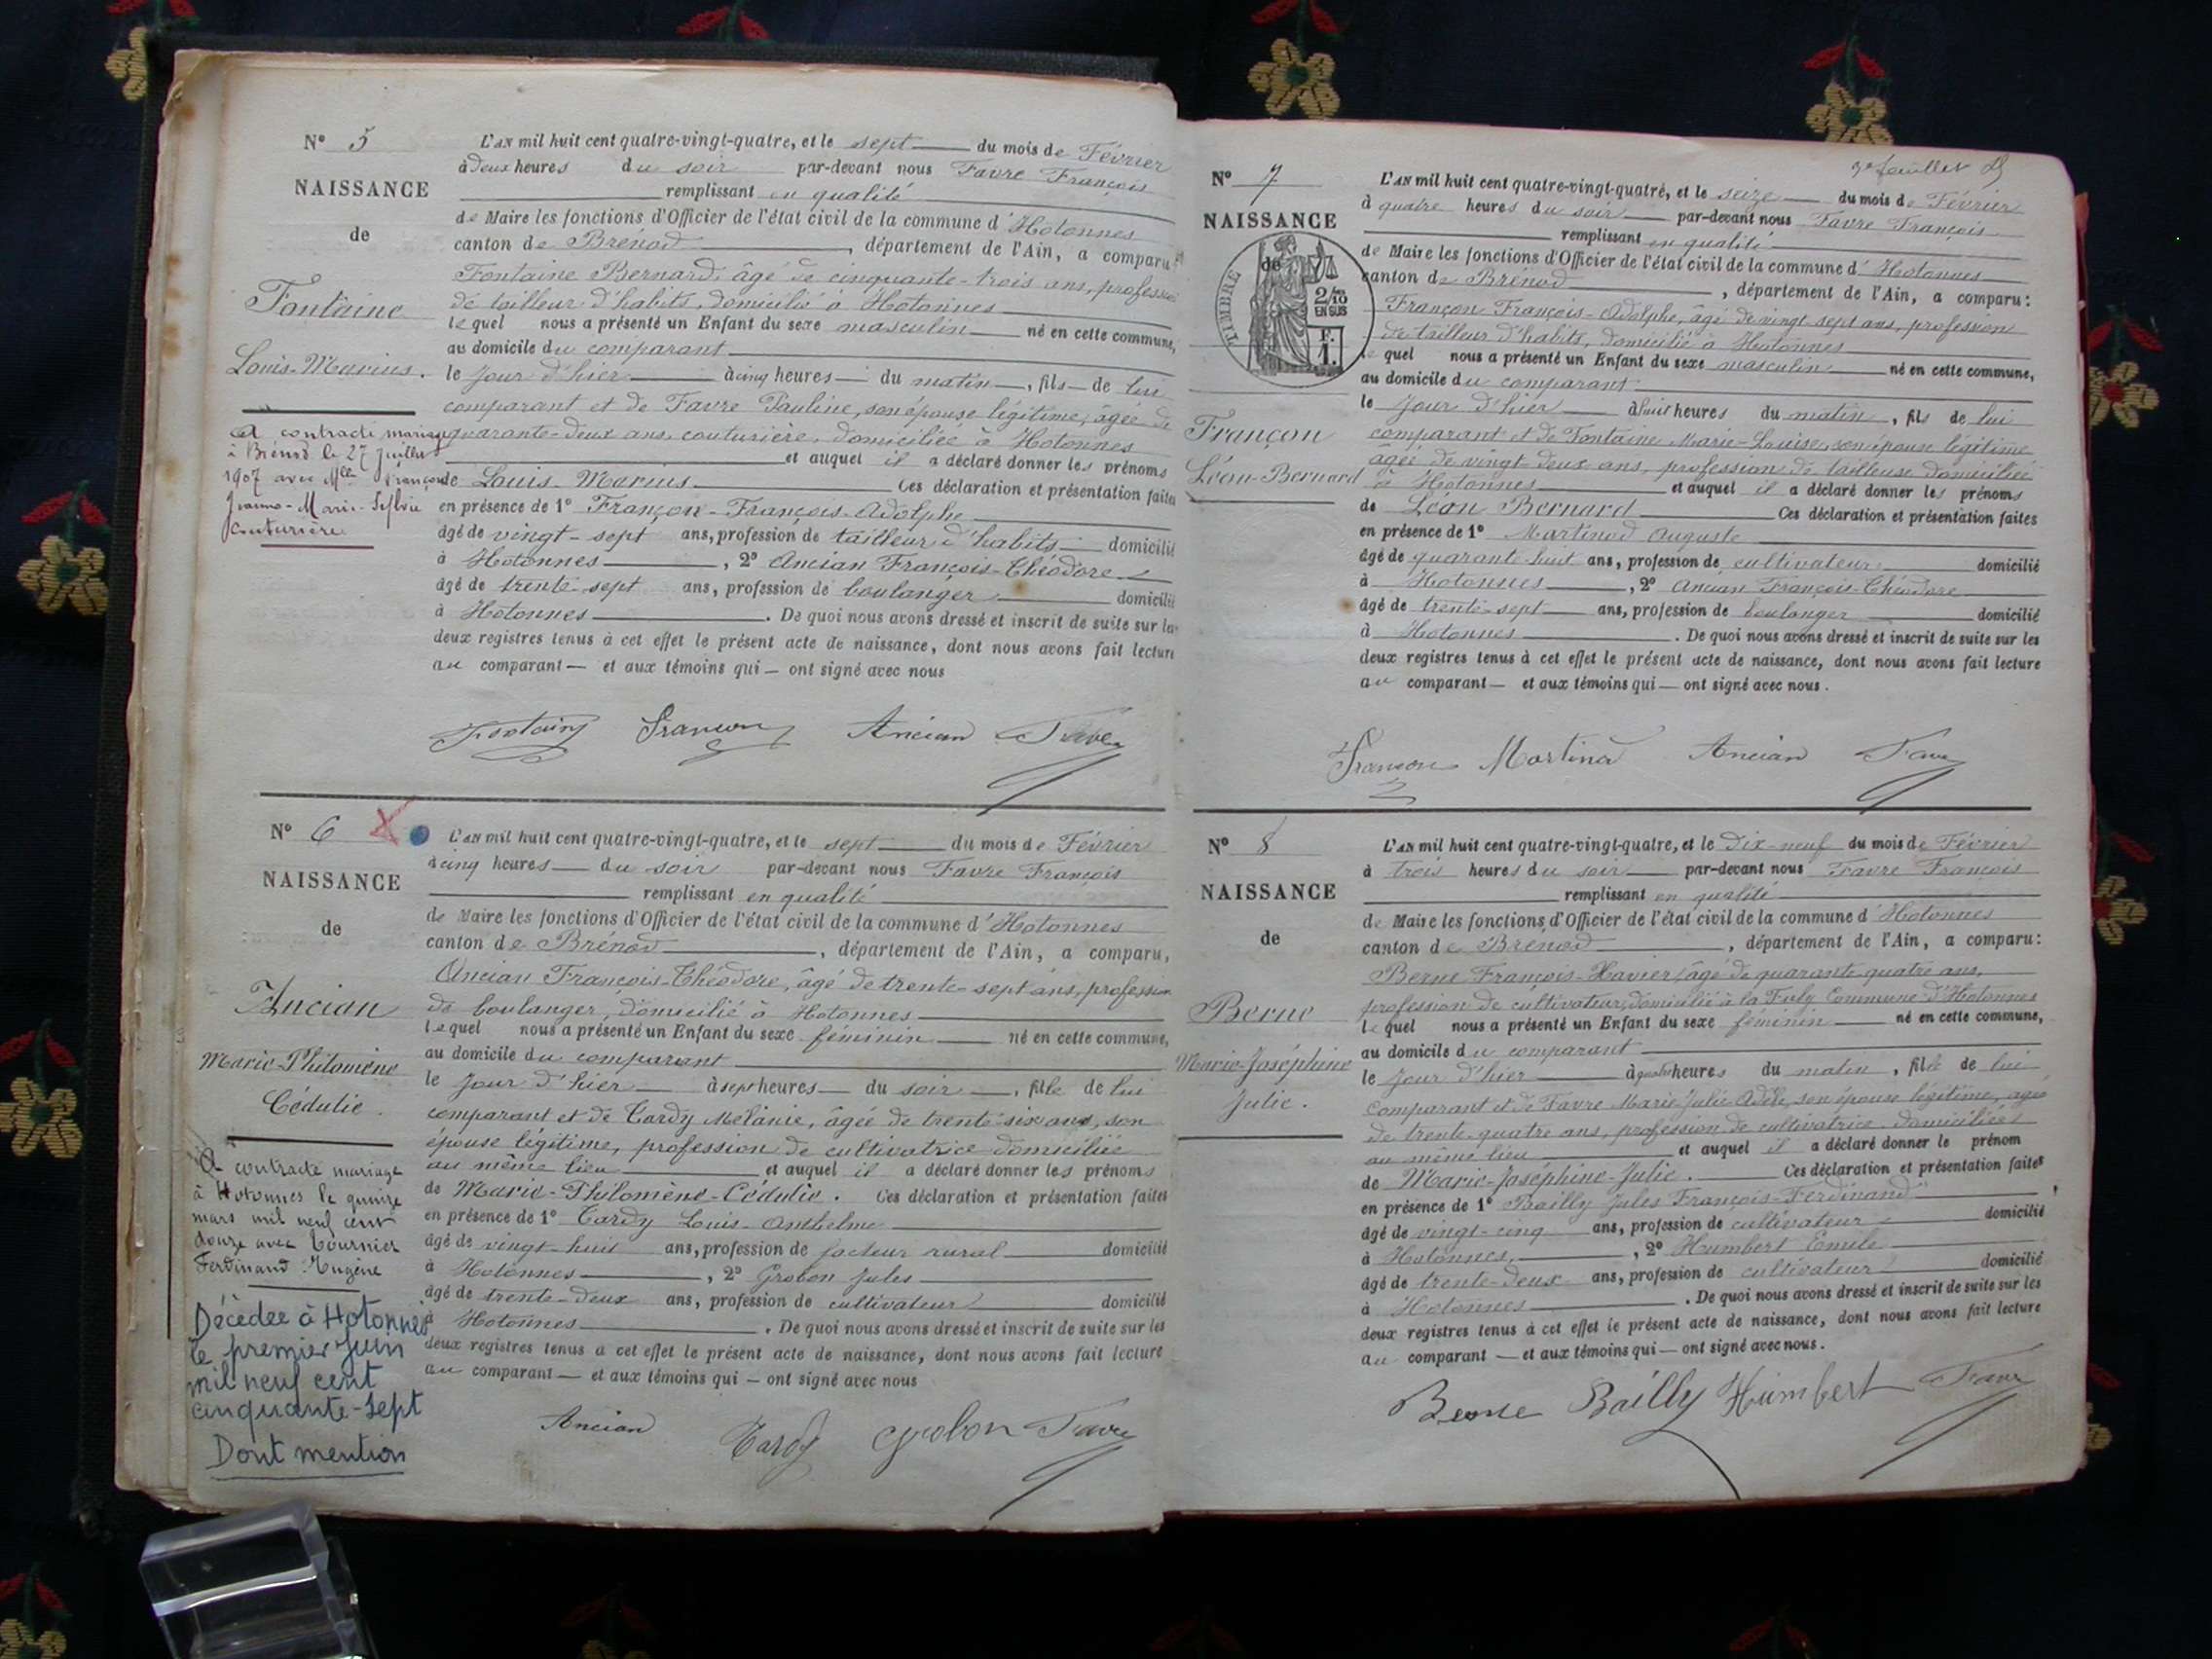 N° 5
NAISSANCE
de
Fontaine
Louis-Marius.
A contracté mariage
à Brénod le 27 Juillet
1907 avec Mlle Françon
Jeanne-Marie-Sylvie
Couturière
L'AN mil huit cent quatre-vingt-quatre, et le sept du mois de Février
à Deux heures du soir par-devant nous Favre François
remplissant en qualité
de Maire les fonctions d'Officier de l'état civil de la commune d'Hotonnes
canton de Brénod, département de l'Ain, a comparu
Fontaine Bernard, âgé de cinquante-trois ans, profession
de tailleur d'habits, domicilié à Hotonnes
lequel nous a présenté un Enfant du sexe masculin né en cette commune,
au domicile du comparant
le Jour d'hier à cinq heures du matin, fils de lui
comparant et de Favre Pauline, son épouse légitime, âgée de
quarante-deux ans, couturière, domiciliée à Hotonnes
et auquel il a déclaré donner les prénoms
de Louis Marius. Ces déclaration et présentation faites
en présence de 1° Françon-François-Adolphe
âgé de vingt-sept ans, profession de tailleur d'habits domicilié
à Hotonnes, 2° Ancian François-Théodore
âgé de trente-sept ans, profession de boulanger domicilié
à Hotonnes. De quoi nous avons dressé et inscrit de suite sur les
deux registres tenus à cet effet le présent acte de naissance, dont nous avons fait lecture
au comparant et aux témoins qui ont signé avec nous
Fontaine Françon Ancian Favre
N° 6
NAISSANCE
de
Ancian
Marie-Philomène
Cédulie.
A contracté mariage
à Hotonnes le quinze
mars mil neuf cent
douze avec Tournier
Ferdinand Eugène
Décédée à Hotonnes
le premier Juin
mil neuf cent
cinquante-sept
Dont mention
L'AN mil huit cent quatre-vingt-quatre, et le sept du mois de Février
à cinq heures du soir par-devant nous Favre François
remplissant en qualité
de Maire les fonctions d'Officier de l'état civil de la commune d'Hotonnes
canton de Brénod, département de l'Ain, a comparu,
Ancian François-Théodore, âgé de trente-sept ans, profession
de boulanger, domicilié à Hotonnes
lequel nous a présenté un Enfant du sexe féminin né en cette commune,
au domicile du comparant
le Jour d'hier à sept heures du soir, fille de lui
comparant et de Tardy Mélanie, âgée de trente-six ans, son
épouse légitime, profession de cultivatrice domiciliée
au même lieu et auquel il a déclaré donner les prénoms
de Marie-Philomène-Cédulie. Ces déclaration et présentation faites
en présence de 1° Tardy Louis-Anthelme
âgé de vingt-huit ans, profession de facteur rural domicilié
à Hotonnes, 2° Grobon Jules
âgé de trente-deux ans, profession de cultivateur domicilié
à Hotonnes. De quoi nous avons dressé et inscrit de suite sur les
deux registres tenus à cet effet le présent acte de naissance, dont nous avons fait lecture
au comparant et aux témoins qui ont signé avec nous
Ancian Tardy Grobon Favre
3e feuillet
N° 7
NAISSANCE
de
TIMBRE
2/10
EN SUS
F.
1.
Françon
Léon-Bernard
L'AN mil huit cent quatre-vingt-quatre, et le seize du mois de Février
à quatre heures du soir par-devant nous Favre François
remplissant en qualité
de Maire les fonctions d'Officier de l'état civil de la commune d'Hotonnes
canton de Brénod, département de l'Ain, a comparu:
Françon François-Adolphe, âgé de vingt-sept ans, profession
de tailleur d'habits, domicilié à Hotonnes
lequel nous a présenté un Enfant du sexe masculin né en cette commune,
au domicile du comparant
le Jour d'hier à huit heures du matin, fils de lui
comparant et de Fontaine Marie-Louise, son épouse légitime
âgée de vingt-deux ans, profession de tailleuse domiciliée
à Hotonnes et auquel il a déclaré donner les prénoms
de Léon Bernard Ces déclaration et présentation faites
en présence de 1° Martinod Auguste
âgé de quarante-huit ans, profession de cultivateur domicilié
à Hotonnes, 2° Ancian François-Théodore
âgé de trente-sept ans, profession de boulanger domicilié
à Hotonnes. De quoi nous avons dressé et inscrit de suite sur les
deux registres tenus à cet effet le présent acte de naissance, dont nous avons fait lecture
au comparant et aux témoins qui ont signé avec nous.
Françon Martinod Ancian Favre
N° 8
NAISSANCE
de
Berne
Marie-Joséphine
Julie.
L'AN mil huit cent quatre-vingt-quatre, et le Dix-neuf du mois de Février
à trois heures du soir par-devant nous Favre François
remplissant en qualité
de Maire les fonctions d'Officier de l'état civil de la commune d'Hotonnes
canton de Brénod, département de l'Ain, a comparu:
Berne François-Xavier, âgé de quarante-quatre ans,
profession de cultivateur, domicilié à la Commune d'Hotonnes
lequel nous a présenté un Enfant du sexe féminin né en cette commune,
au domicile du comparant
le Jour d'hier à quatre heures du matin, fille de lui
comparant et de Favre Marie-Julie-Adèle, son épouse légitime, âgée
de trente-quatre ans, profession de cultivatrice, domiciliée
au même lieu et auquel il a déclaré donner le prénom
de Marie-Joséphine-Julie. Ces déclaration et présentation faites
en présence de 1° Bailly Jules François-Ferdinand
âgé de vingt-cinq ans, profession de cultivateur domicilié
à Hotonnes, 2° Humbert Emile
âgé de trente-deux ans, profession de cultivateur domicilié
à Hotonnes. De quoi nous avons dressé et inscrit de suite sur les
deux registres tenus à cet effet le présent acte de naissance, dont nous avons fait lecture
au comparant et aux témoins qui ont signé avec nous.
Berne Bailly Humbert Favre